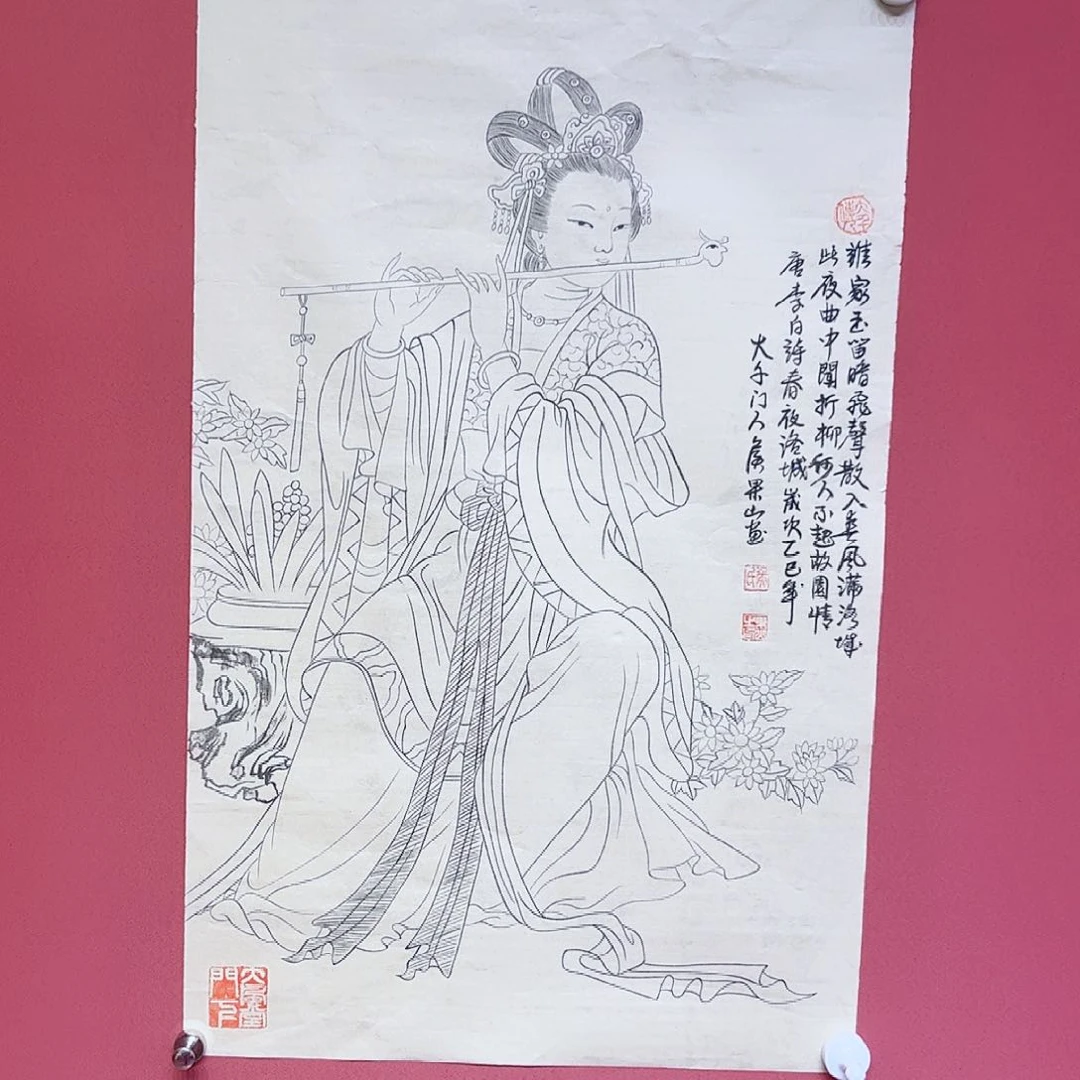 誰家玉笛暗飛聲散入春風满洛城
此夜曲中聞折柳何人不起故園情
唐李白詩春夜洛城歲次乙巳年
大千门人果山画
大風堂
門下